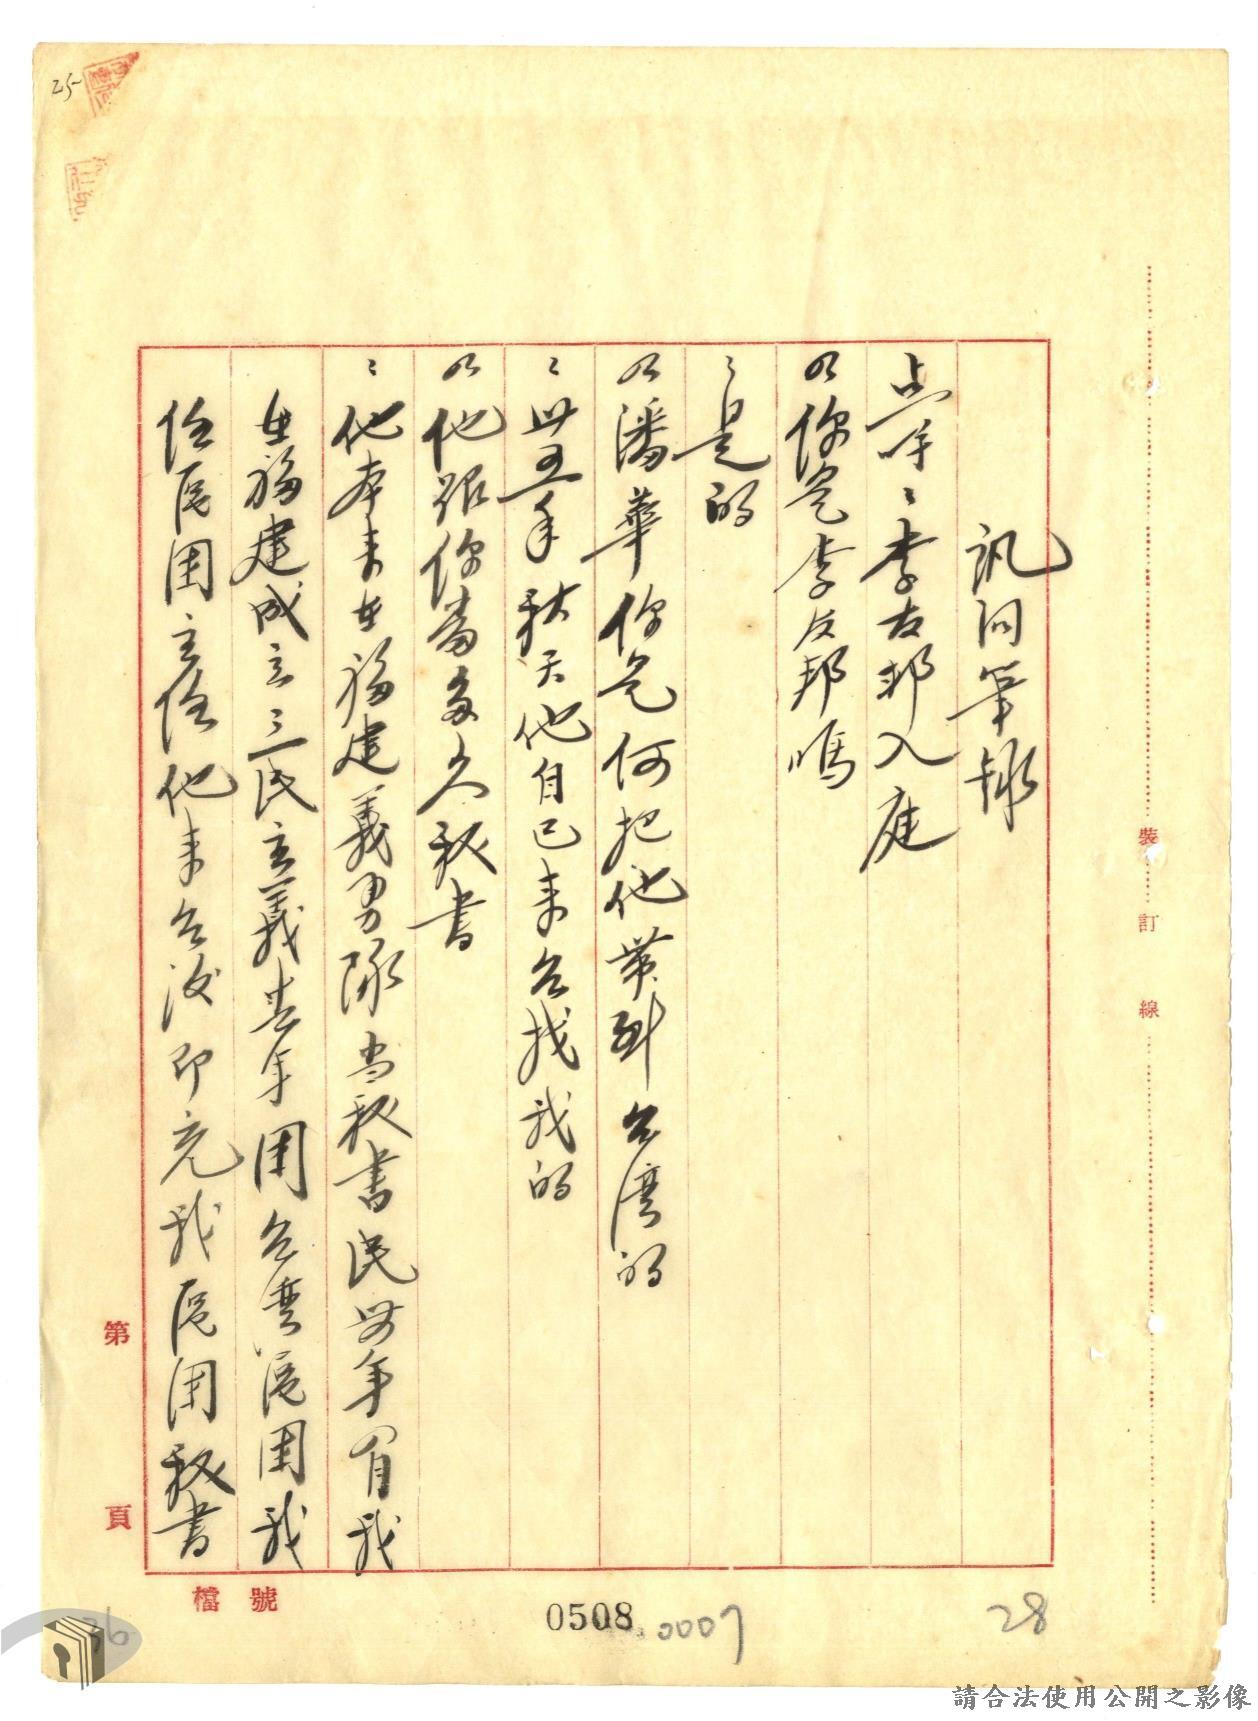 訊問筆錄
点呼：李友邦入庭
問你是李友邦嗎
：是的
問潘華你是何把他帶到台灣的
：卅五年秋天他自己来台找我的
問他跟你當多久秘書
：他本来在福建義勇隊当秘書民卅年间我
在福建成立三民主義青年團台灣區團我
任區團主任他来台後即充我區團秘書
裝
訂
線
第
頁
檔號
25
0508
0007
28
36
請合法使用公開之影像